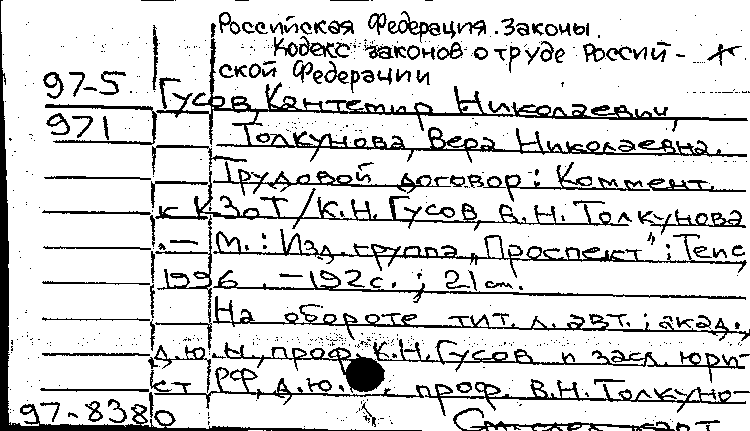 Российская Федерация. Законы.
Кодекс законов о труде Россий- +
ской Федерации
97-5 Гусов, Кантемир Николаевич,
971 Толкунова, Вера Николаевна.
Трудовой договор: Коммент.
к КЗоТ/К.Н. Гусов, В.Н. Толкунова
.— М.: Изд. группа „Проспект“: Теис,
1996. —192с.; 21см.
На обороте тит. л. авт.: акад.,
д.ю.н., проф. К.Н. Гусов и засл. юри-
ст РФ, д.ю. . проф. В.Н. Толкуно-
97-8380 След. карт